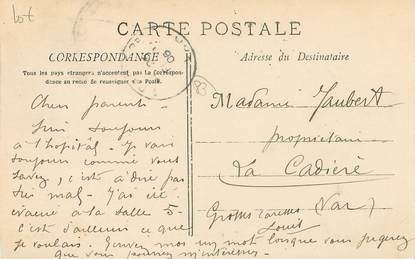 lot
CARTE POSTALE
CORRESPONDANCE
Tous les pays étrangers n'acceptent pas la Correspon-
dance au recto (se renseigner à la Poste).
Adresse du Destinataire
83
Chers parents
Suis toujours
à l'hopital. Je vais
toujours comme vous
savez, c'est à dire pas
très mal. J'ai été
évacué à la salle 5.
c'est d'ailleurs ce que
je voulais. Ecrivez moi un mot lorsque vous jugerez
que vous pouvez m'intéresser.
Madame Jaubert
propriétaire
La Cadière
(Var)
Grosses caresses
Louis